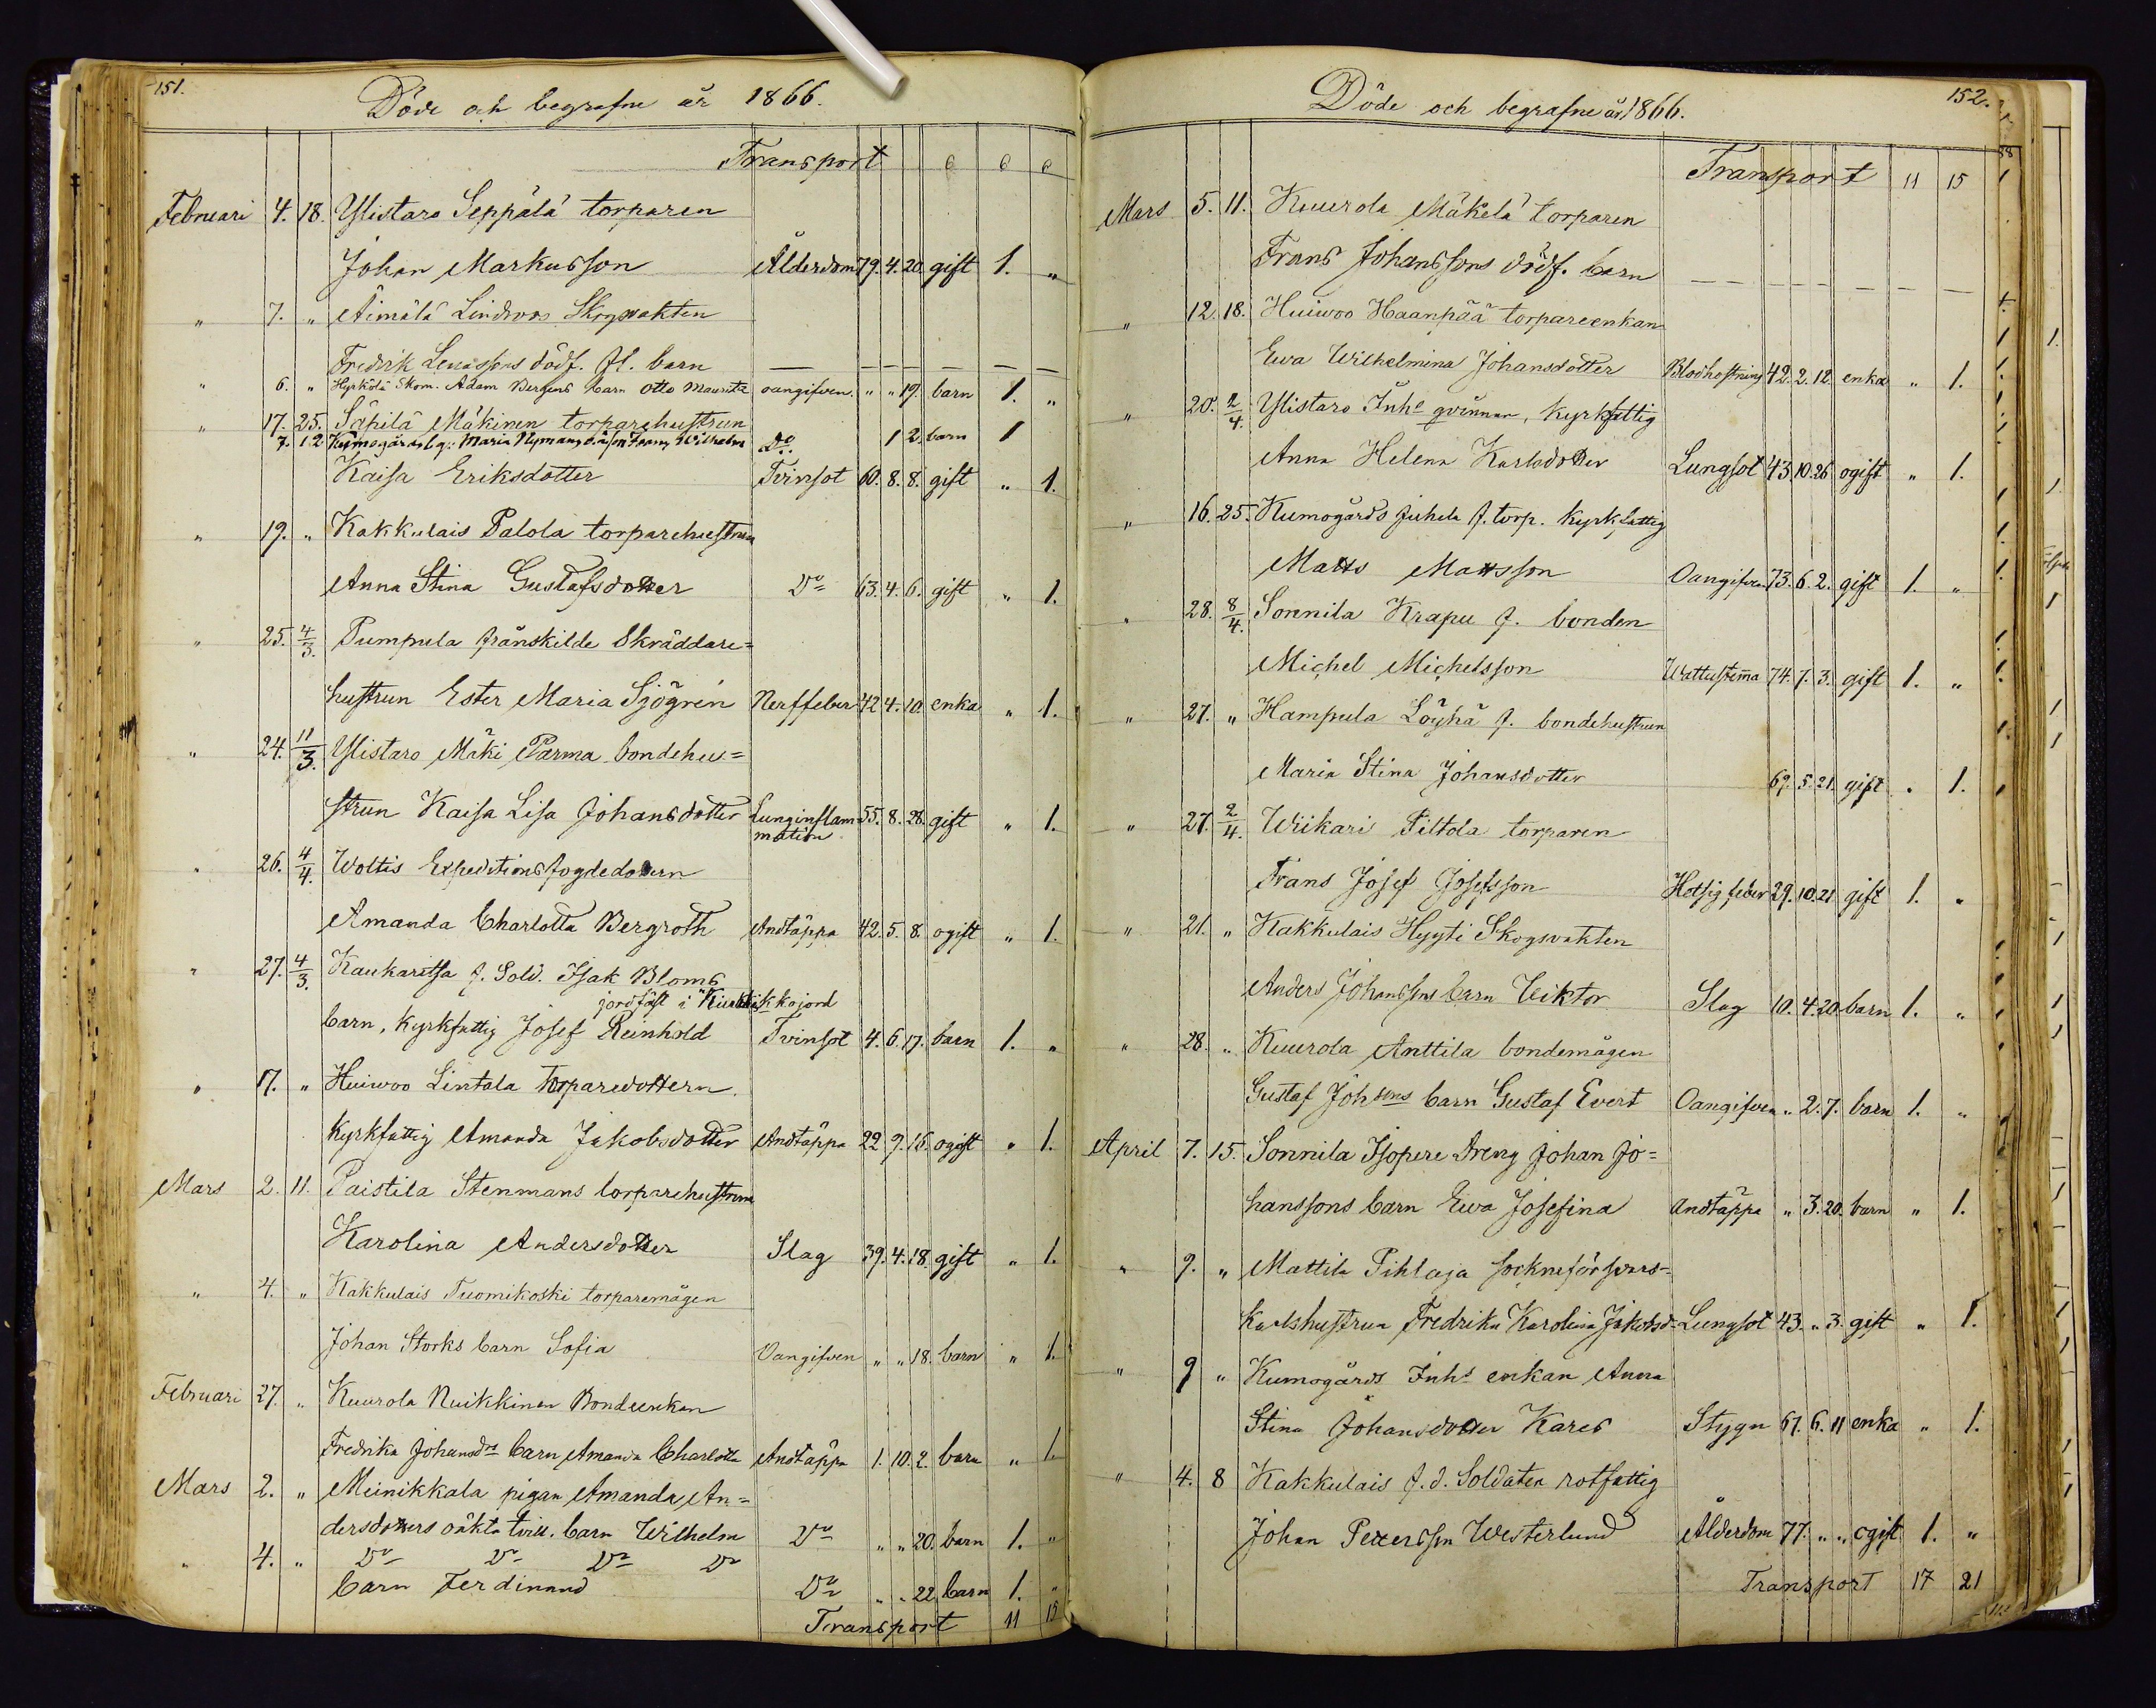 151.
Döde och begrafne år 1866.
Transport 6 6 6
Februari 4. 18. Ylistaro Seppälä torparen
Johan Markusson Ålderdom 79. 4. 20. gift 1. "
" 7. " Äimälä Lindroos Skogvakten
Fredrik Lenassons dödf. fl. barn — — — — — — —
" 6. " Hyrkölä Skom. Adam Bergens barn Otto Mauritz oangifven. " " 19. barn 1. "
" 17. 25. Säpilä Mäkinen torparehustrun
7. 12. Kumogårds q: Maria Nymans Franz Wilhelm Do. 1 2. barn 1
Kaisa Eriksdotter Tvinsot 60. 8. 8. gift " 1.
" 19. " Kakkulais Palola torparehustrun
Anna Stina Gustafsdotter Do 63. 4. 6. gift " 1.
" 25. 4/3. Pumpula frånskilde Skräddare=
hustrun Ester Maria Sjögrén Nerffeber 42 4. 10. enka " 1.
" 24. 11/3. Ylistaro Mäki Parma bondehu=
strun Kaisa Lisa Johansdotter Lunginflam=mation 55. 8. 28. gift " 1.
" 26. 4/4. Woltis Expeditionsfogdedottern
Amanda Charlotta Bergroth Andtäppa 42. 5. 8. ogift " 1.
" 27. 4/3. Kaukaritsa f. Sold. Isak Bloms
jordfäst i Kiukkajord
barn, kyrkfattig Josef Reinhold Tvinsot 4. 6. 17. barn 1. "
" 17. " Huiwoo Lintala torparedottern
kyrkfattig Amanda Jakobsdotter Andtäppa 22 9. 15. ogift " 1.
Mars 2. 11. Paistila Stenmans torparehustrun
Karolina Andersdotter Slag 39. 4. 18. gift " 1.
" 4. " Kakkulais Tuomikoski torparemågen
Johan Storks barn Sofia Oangifven " " 18. barn " 1.
Februari 27. " Kuurola Nuikkinen Bondeenkan
Fredrika Johansdrs barn Amanda Charlotta Andtäppa 1. 10. 2. barn " 1.
Mars 2. " Meinikkala pigan Amanda An=
dersdotters oäkta tvill. barn Wilhelm Do " " 20. barn 1. "
" 4. " Do Do Do Do
barn Ferdinand Do " " 22. barn 1. "
Transport 11 15
152.
Döde och begrafne år 1866.
Transport 11 15
Mars 5. 11. Kuurola Mäkelä torparen
Frans Johanssons dödf. barn — — — — — — —
" 12. 18. Huiwoo Haanpää torpareenkan
Ewa Wilhelmina Johansdotter Blodhostning 42. 2. 12. enka " 1.
" 20. 2/4. Ylistaro Inhe qvinnan, kyrkfattig
Anna Helena Karlsdotter Lungsot 43. 10. 26 ogift " 1.
" 16. 25. Kumogårds Juhela f. torp. kyrkfattig
Matts Mattsson Oangifven 73. 6. 2. gift 1. "
" 28. 8/4. Sonnila Krapu f. bonden
Michel Michelsson 74. 7. 3. gift 1. "
" 27. " Hampula Löyhä f. bondehustrun
Maria Stina Johansdotter 69. 5. 21. gift " 1.
" 27. 2/4. Wiikari Piltola torparen
Frans Josef Josefsson Hetsig feber 29. 10. 21 gift 1. "
" 21. " Kakkulais Hyyti Skogsvakten
Anders Johanssons barn Viktor Slag 10. 4. 20. barn 1. "
" 28. " Kuurola Anttila bondemågen
Gustaf Johsons barn Gustaf Evert Oangifven " 2. 7. barn 1. "
April 7. 15. Sonnila Isopere Dreng Johan Jo=
hanssons barn Ewa Josefina Andtäppa " 3. 20. barn " 1.
" 9. " Mattila Pihlaja sockneförsvars=
karlshustrun Fredrika Karolina Jakobsd. Lungsot 43. " 3. gift " 1.
" 9 " Kumogårds Inhs enkan Anna
Stina Johansdotter Kares Stygn 67. 6. 11 enka " 1.
" 4. 8 Kakkulais f. d. Soldaten rotfattig
Johan Pettersson Westerlund Ålderdom 77. " " ogift 1. "
Transport 17 21